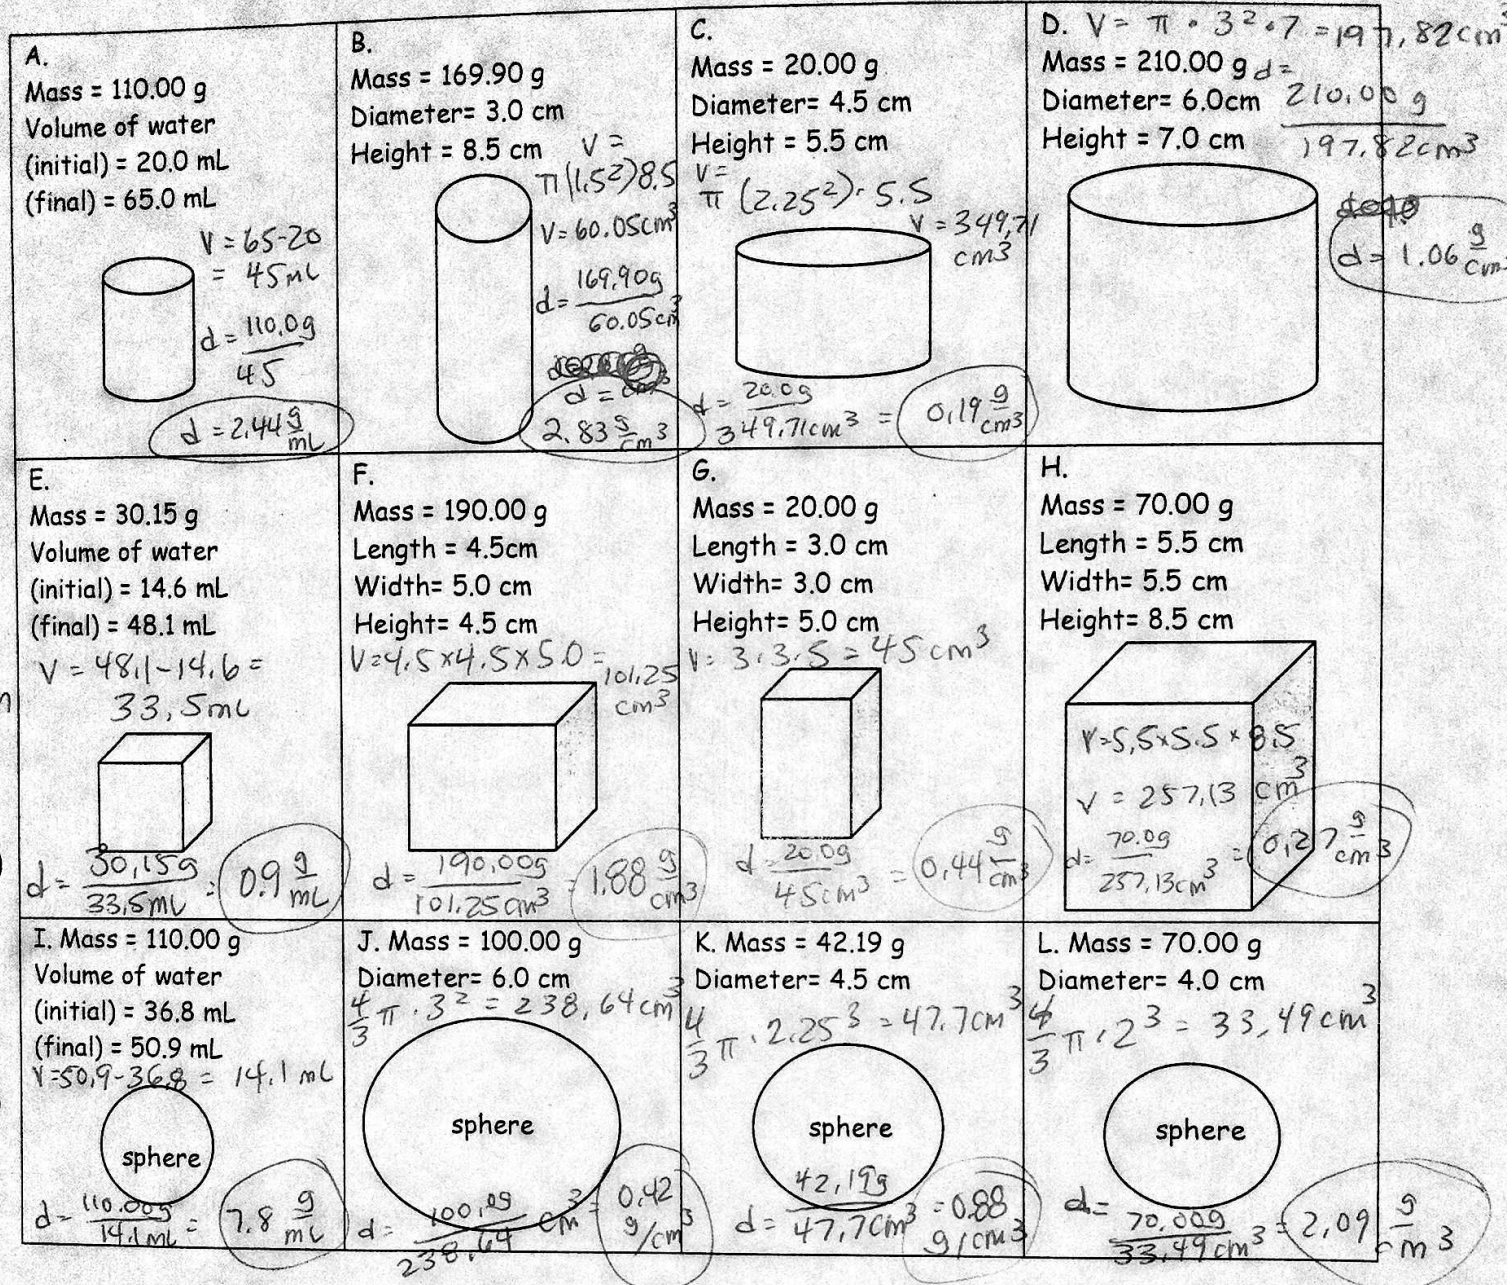 A.
Mass = 110.00 g
Volume of water
(initial) = 20.0 mL
(final) = 65.0 mL
V = 65-20
= 45mL
d = 110.0g
45
d = 2.44 g
mL
B.
Mass = 169.90 g
Diameter= 3.0 cm
Height = 8.5 cm
V =
π(1.5²)8.5
V= 60.05cm³
d= 169.90g
60.05cm³
d = cm³
2.83 g
cm³
C.
Mass = 20.00 g
Diameter= 4.5 cm
Height = 5.5 cm
V=
π (2.25²)· 5.5
V = 349.71
cm³
d = 20.0g
349.71cm³ = 0.19 g
cm³
D. V = π · 3² · 7 = 197.82cm³
Mass = 210.00 g d =
Diameter= 6.0cm 210.00 g
Height = 7.0 cm 197.82cm³
d = 1.06 g
cm³
E.
Mass = 30.15 g
Volume of water
(initial) = 14.6 mL
(final) = 48.1 mL
V = 48.1-14.6 =
33.5mL
d = 30.15g = 0.9 g
33.5mL mL
F.
Mass = 190.00 g
Length = 4.5cm
Width= 5.0 cm
Height= 4.5 cm
V=4.5×4.5×5.0 =
101.25
cm³
d= 190.00g = 1.88 g
101.25cm³ cm³
G.
Mass = 20.00 g
Length = 3.0 cm
Width= 3.0 cm
Height= 5.0 cm
V= 3·3·5 = 45 cm³
d = 20.0g = 0.44 g
45cm³ cm³
H.
Mass = 70.00 g
Length = 5.5 cm
Width= 5.5 cm
Height= 8.5 cm
V=5.5×5.5×8.5
V = 257.13 cm³
d= 70.0g = 0.27 g
257.13cm³ cm³
I. Mass = 110.00 g
Volume of water
(initial) = 36.8 mL
(final) = 50.9 mL
V=50.9-36.8 = 14.1 mL
sphere
d= 110.00g = 7.8 g
14.1mL mL
J. Mass = 100.00 g
Diameter= 6.0 cm
4
3 π · 3² = 238.64cm³
sphere
d= 100.0g = 0.42
238.64 cm³ g/cm³
K. Mass = 42.19 g
Diameter= 4.5 cm
4
3 π · 2.25³ = 47.7cm³
sphere
d = 42.19g = 0.88
47.7cm³ g/cm³
L. Mass = 70.00 g
Diameter= 4.0 cm
4
3 π · 2³ = 33.49cm³
sphere
d= 70.00g = 2.09 g
33.49cm³ cm³